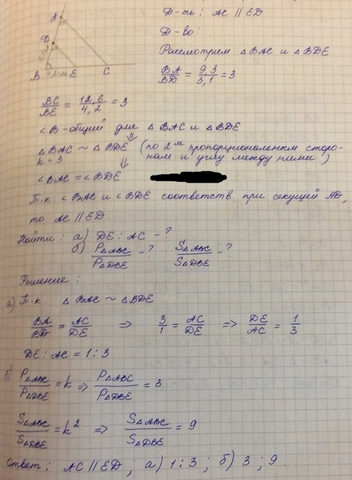 Д-ть: AC || ED
Д-во:
Рассмотрим △BAC и △BDE
BA/BD = 9,3/3,1 = 3
A
D
B E C
BC/BE = 12,6/4,2 = 3
∠B - общий для △BAC и △BDE
△BAC ~ △BDE (по 2м пропорциональным сторо-
k = 3 нам и углу между ними)
⇓
∠BAC = ∠BDE
Т.к. ∠BAC и ∠BDE соответств. при секущей AD,
то AC || ED
Найти: а) DE : AC - ?
б) P△ABC/P△DBE - ? S△ABC/S△DBE - ?
Решение:
а) Т.к. △BAC ~ △BDE
BA/BD = AC/DE ⇒ 3/1 = AC/DE ⇒ DE/AC = 1/3
DE : AC = 1 : 3
б) P△ABC/P△DBE = k ⇒ P△ABC/P△DBE = 3
S△ABC/S△DBE = k² ⇒ S△ABC/S△DBE = 9
Ответ: AC || ED, а) 1:3; б) 3; 9